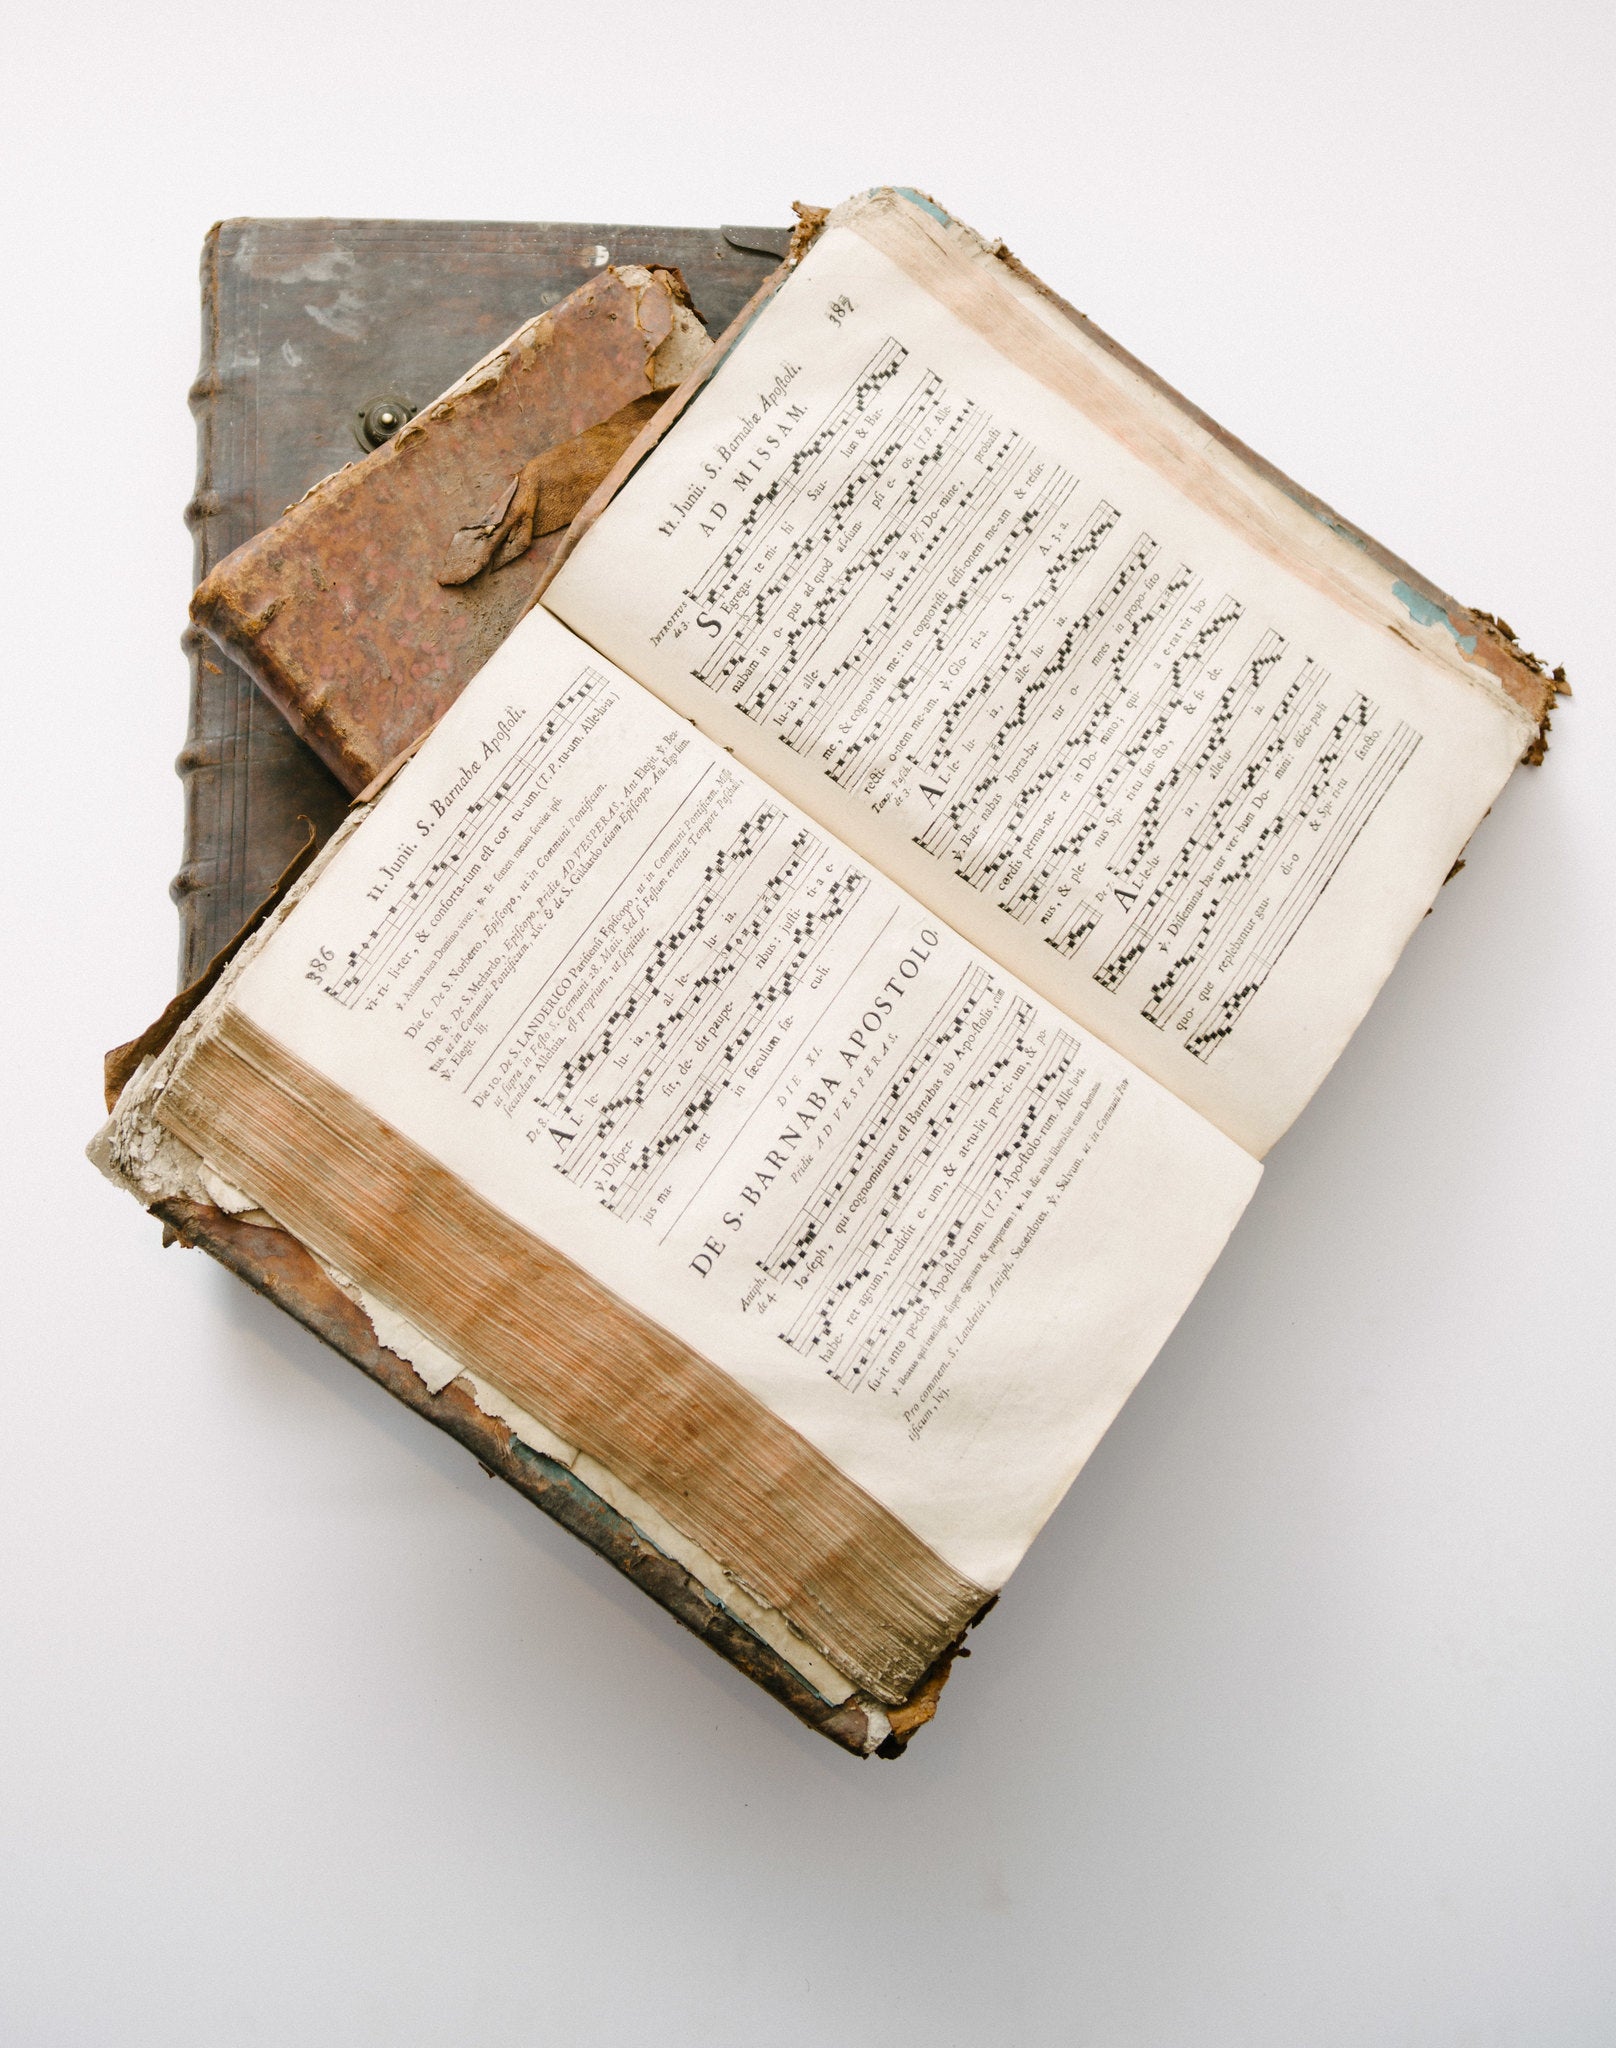 386
11. Junii. S. Barnabæ Apoſtoli.
vi-ri-li-ter, & conforta-tum eſt cor tu-um. (T. P. tu-um. Alle-lu-ia.)
℣. Anima mea Domino vivet; ℟. Et ſemen meum ſerviet ipſi.
Die 6. De S. Norberto, Epiſcopo, ut in Communi Pontificum.
Die 8. De S. Medardo, Epiſcopo, Pridie AD VESPERAS, Ant Elegit. ℣. Bea-
tus. ut in Communi Pontificum, xlv. & de S. Gildardo etiam Epiſcopo, Ant. Ego ſum.
℣. Elegit. lij.
Die 10. De S. LANDERICO Pariſienſi Epiſcopo, ut in Communi Pontificum. Miſſa
ut ſupra in Feſto S. Germani 28. Maii. Sed ſi Feſtum eveniat Tempore Paſchali,
ſecundum Alleluia. eſt proprium, ut ſequitur.
De 8.
AL- le- lu- ia, al- le- lu- ia,
℣. Diſper- ſit, de- dit paupe- ribus: juſti- ti-a e-
jus ma- net in ſæculum ſæ- cu-li.
DIE XI.
DE S. BARNABA APOSTOLO.
Pridie AD VESPERAS.
Antiph.
de 4.
Jo-ſeph, qui cognominatus eſt Barnabas ab A-po-ſtolis, cùm
habe- ret agrum, vendidit e- um, & at-tu-lit pre-ti-um, & po-
ſu-it ante pe-des Apo-ſtolo-rum. (T. P. Apo-ſtolo-rum. Alle-lu-ia.
℣. Beatus qui intelligit ſuper egenum & pauperem: ℟. In die mala liberabit eum Dominus.
Pro commem. S. Landerici, Antiph. Sacerdotes. ℣. Salvum. ut in Communi Pon-
tificum, lvj.
387
11. Junii. S. Barnabæ Apoſtoli.
AD MISSAM.
INTROITUS
de 3.
SEgrega- te mi- hi Sau- lum & Bar-
nabam in o- pus ad quod aſ-ſum- pſi e- os. (T. P. Alle-
lu-ia, alle- lu- ia. Pſ. Do-mine, probaſti
me, & cognoviſti me: tu cognoviſti ſeſſi-onem me-am & reſur-
recti- o-nem me-am. ℣. Glo- ri-a. S. A. 3. a.
Temp. Paſch.
de 3.
AL-le- lu- ia, alle- lu- ia.
℣. Bar- nabas horta-ba- tur o- mnes in propo-ſito
cordis perma-ne- re in Do- mino; qui- a e-rat vir bo-
nus, & ple- nus Spi- ritu ſan-cto, & fi- de.
De 7.
AL-le-lu- ia, alle-lu- ia.
℣. Diſſemina-ba-tur ver-bum Do- mini: diſci-pu-li
quo- que replebantur gau- di-o & Spi- ritu ſancto.